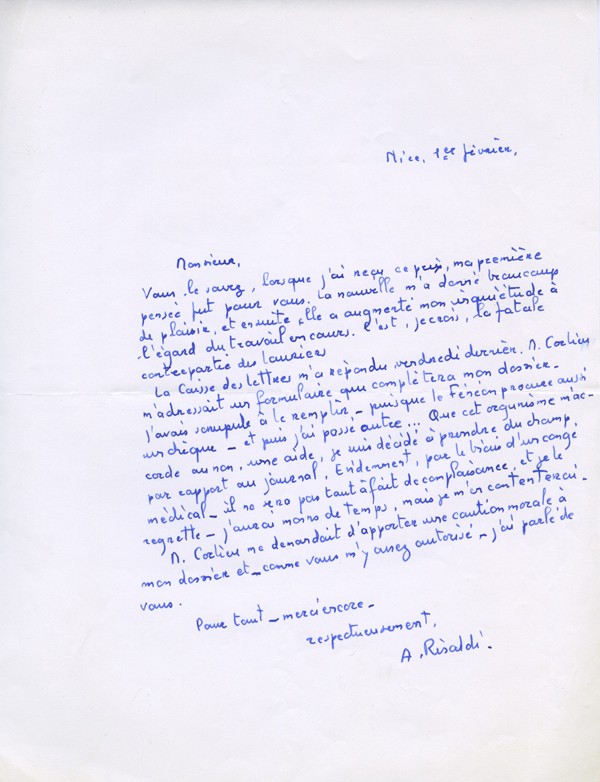 Nice, 1er février,
Monsieur,
Vous le savez, lorsque j'ai reçu ce prix, ma première
pensée fut pour vous. La nouvelle m'a donné beaucoup
de plaisir, et ensuite elle a augmenté mon inquiétude à
l'égard du travail en cours. C'est, je crois, la fatale
contrepartie des lauriers
La Caisse des lettres m'a répondu vendredi dernier. M. Corlieu
m'adressait un formulaire qui complétera mon dossier.
J'avais scrupule à le remplir – puisque le Fénéon procure aussi
un chèque – et puis j'ai passé outre... Que cet organisme m'ac-
corde ou non, une aide, je suis décidé à prendre du champ,
par rapport au journal. Evidemment, par le biais d'un congé
médical – il ne sera pas tout à fait de complaisance, et je le
regrette – j'aurai moins de temps, mais je m'en contenterai.
M. Corlieu me demandait d'apporter une caution morale à
mon dossier et – comme vous m'y aviez autorisé – j'ai parlé de
vous.
Pour tout – merci encore –
respectueusement,
A. Rinaldi.